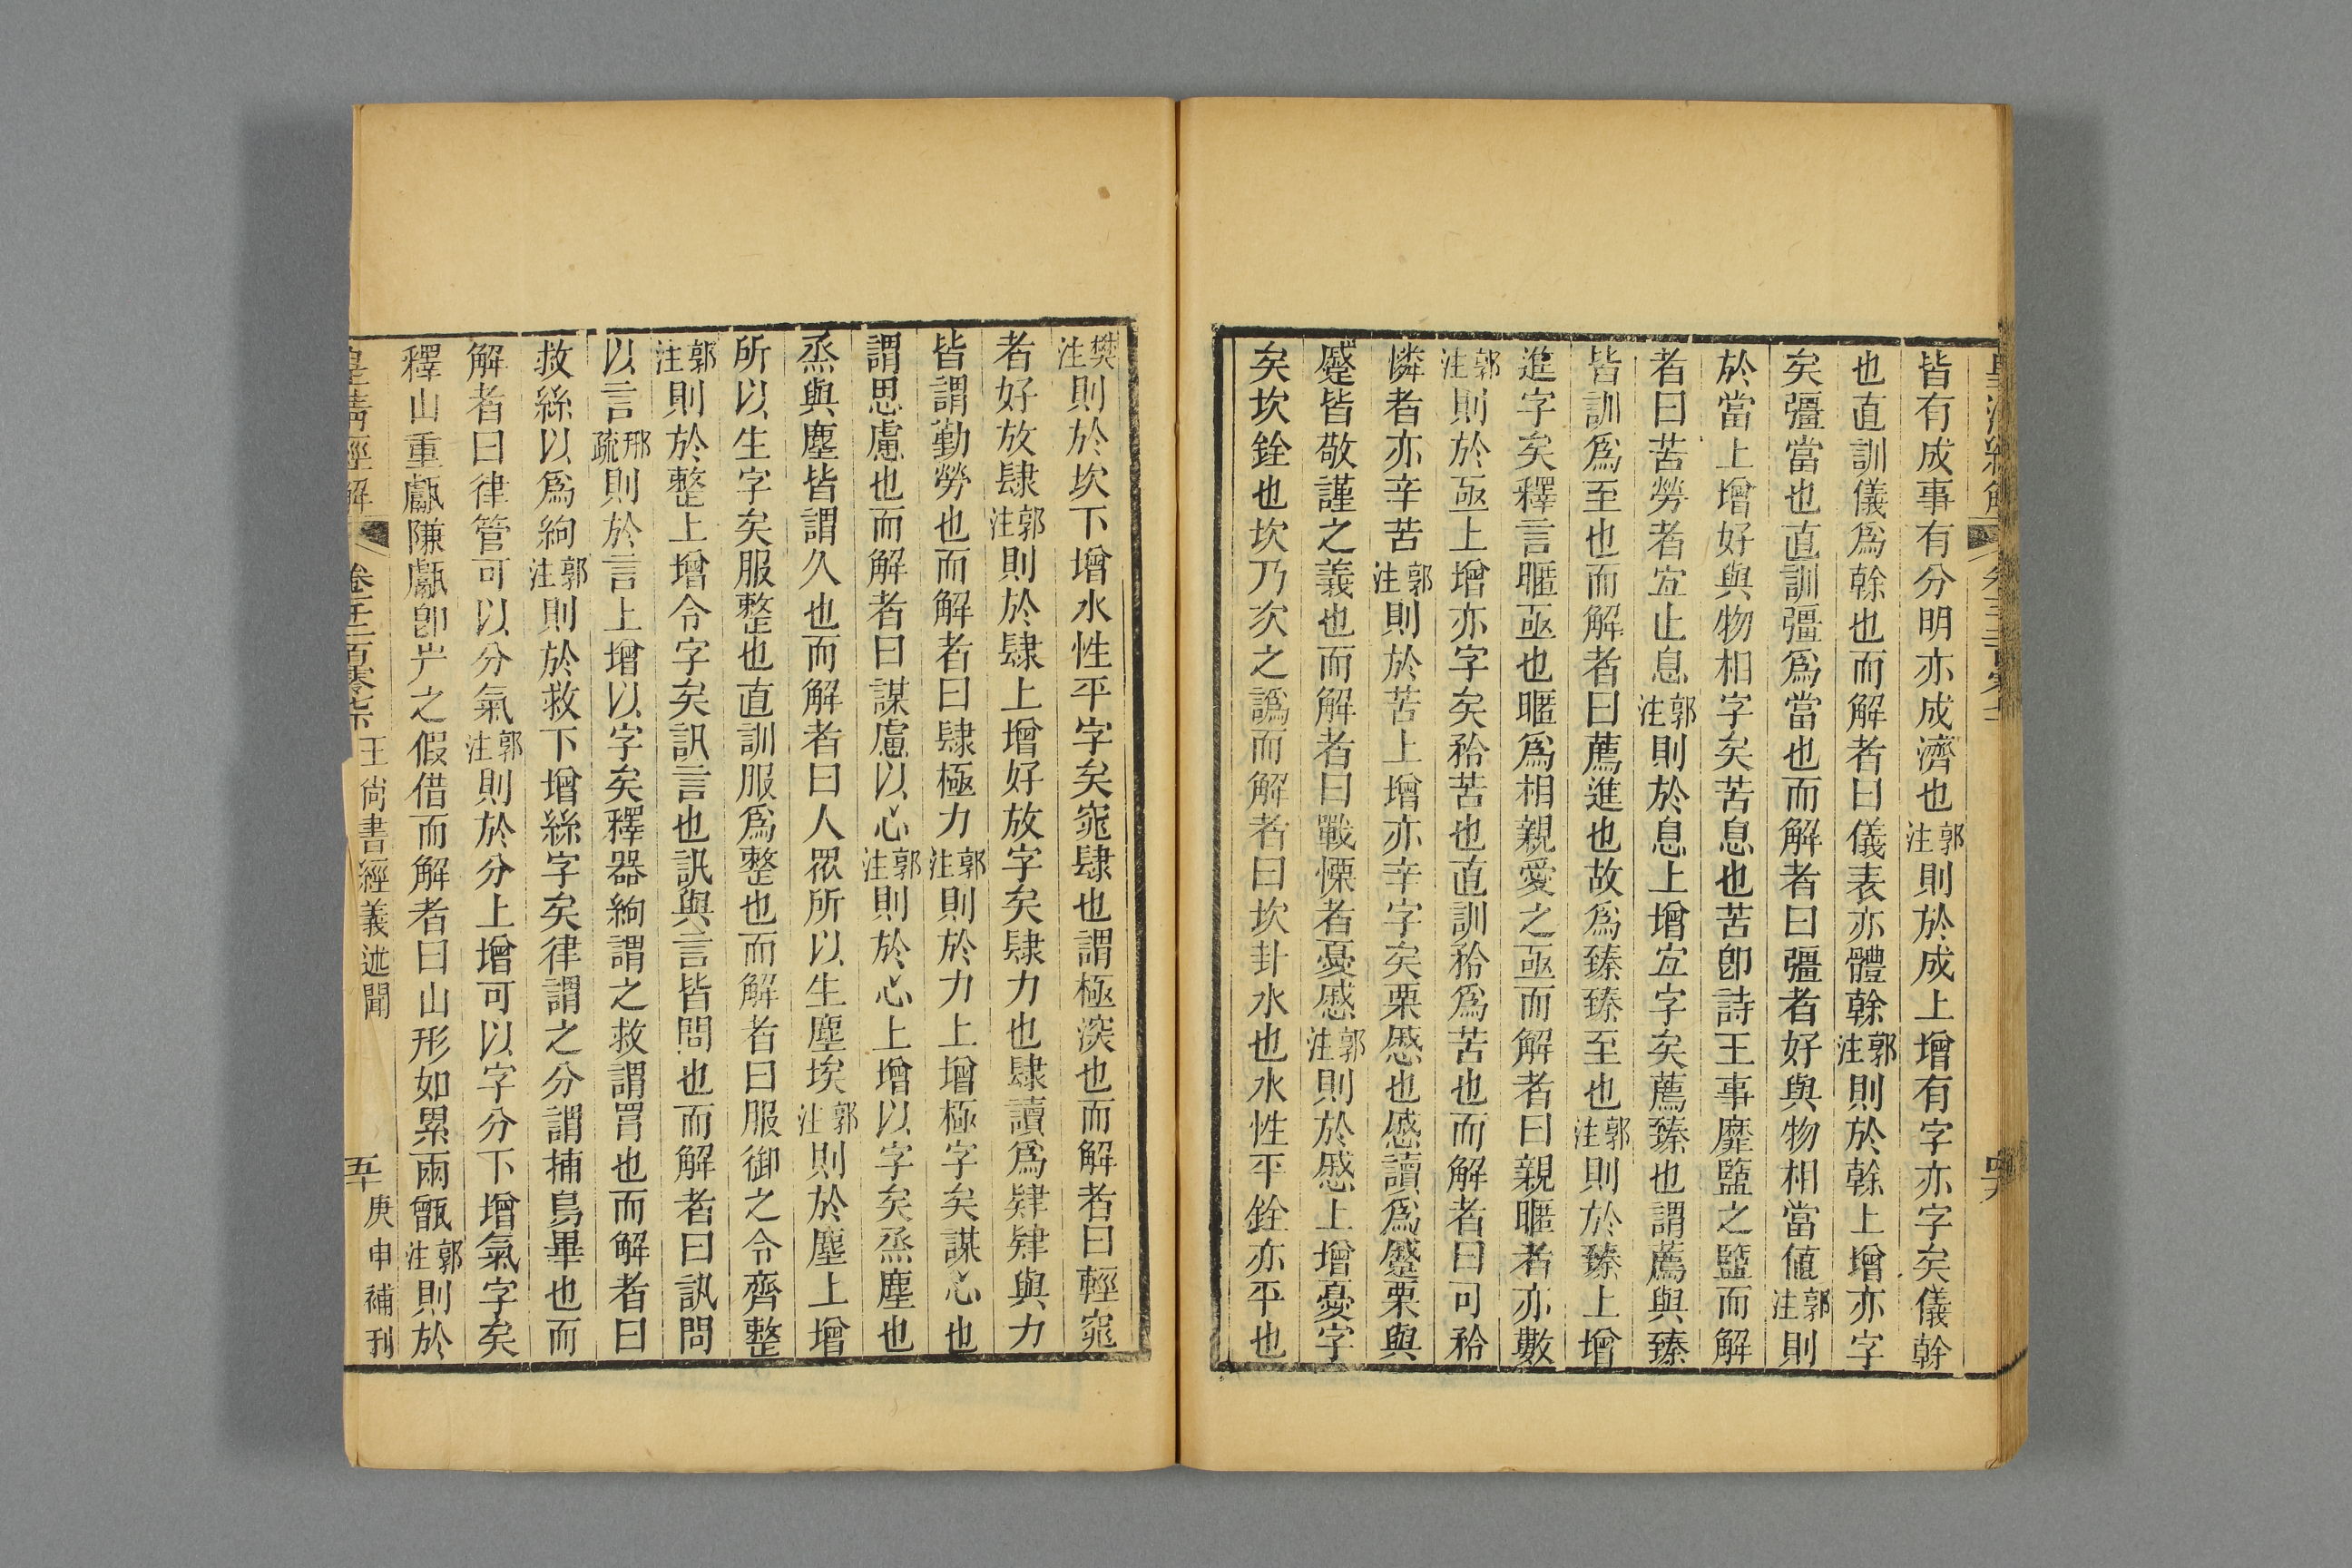 皆有成事有分明亦成濟也郭注則於成上增有字亦字矣儀幹
也直訓儀爲幹也而解者曰儀表亦體幹郭注則於幹上增亦字
矣彊當也直訓彊爲當也而解者曰彊者好與物相當値郭注則
於當上增好與物相字矣苦息也苦卽詩王事靡盬之盬而解
者曰苦勞者宜止息郭注則於息上增宜字矣薦臻也謂薦與臻
皆訓爲至也而解者曰薦進也故爲臻臻至也郭注則於臻上增
進字矣釋言暱亟也暱爲相親愛之亟而解者曰親暱者亦數
郭注則於亟上增亦字矣矜苦也直訓矜爲苦也而解者曰可矜
憐者亦辛苦郭注則於苦上增亦辛字矣栗慼也慼讀爲蹙栗與
蹙皆敬謹之義也而解者曰戰慄者憂慼郭注則於慼上增憂字
矣坎銓也坎乃次之譌而解者曰坎卦水也水性平銓亦平也
樊注則於坎下增水性平字矣窕肆也謂極深也而解者曰輕窕
者好放肆郭注則於肆上增好放字矣肆力也肆讀爲肄肄與力
皆謂勤勞也而解者曰肆極力郭注則於力上增極字矣謀心也
謂思慮也而解者曰謀慮以心郭注則於心上增以字矣烝塵也
烝與塵皆謂久也而解者曰人眾所以生塵埃郭注則於塵上增
所以生字矣服整也直訓服爲整也而解者曰服御之令齊整
郭注則於整上增令字矣訊言也訊與言皆問也而解者曰訊問
以言邢疏則於言上增以字矣釋器絇謂之救謂罥也而解者曰
救絲以爲絇郭注則於救下增絲字矣律謂之分謂捕鳥畢也而
解者曰律管可以分氣郭注則於分上增可以字分下增氣字矣
釋山重甗隒甗卽屵之假借而解者曰山形如累兩甑郭注則於
皇淸經解 卷千二百零七下 王尚書經義述聞 五十 庚申補刊